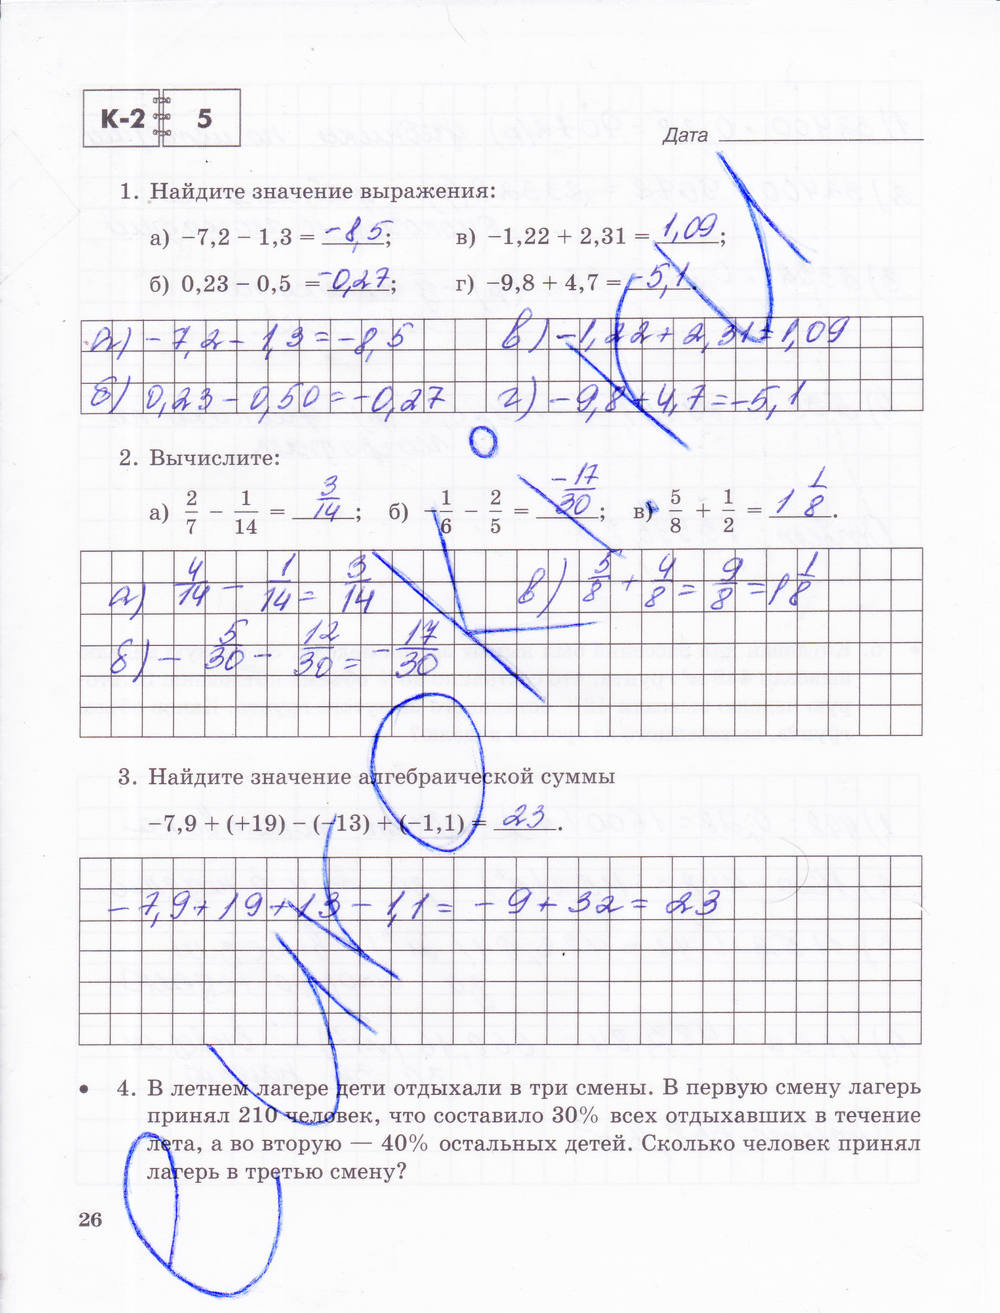 К-2 5
Дата
1. Найдите значение выражения:
а) −7,2 − 1,3 = −8,5; в) −1,22 + 2,31 = 1,09;
б) 0,23 − 0,5 = −0,27; г) −9,8 + 4,7 = −5,1.
а) −7,2 − 1,3 = −8,5 в) −1,22 + 2,31 = 1,09
б) 0,23 − 0,50 = −0,27 г) −9,8 + 4,7 = −5,1
2. Вычислите:
а) 2/7 − 1/14 = 3/14; б) −1/6 − 2/5 = −17/30; в) 5/8 + 1/2 = 1 1/8.
а) 4/14 − 1/14 = 3/14 в) 5/8 + 4/8 = 9/8 = 1 1/8
б) −5/30 − 12/30 = −17/30
3. Найдите значение алгебраической суммы
−7,9 + (+19) − (−13) + (−1,1) = 23.
−7,9 + 19 + 13 − 1,1 = −9 + 32 = 23
• 4. В летнем лагере дети отдыхали в три смены. В первую смену лагерь
принял 210 человек, что составило 30% всех отдыхавших в течение
лета, а во вторую — 40% остальных детей. Сколько человек принял
лагерь в третью смену?
26